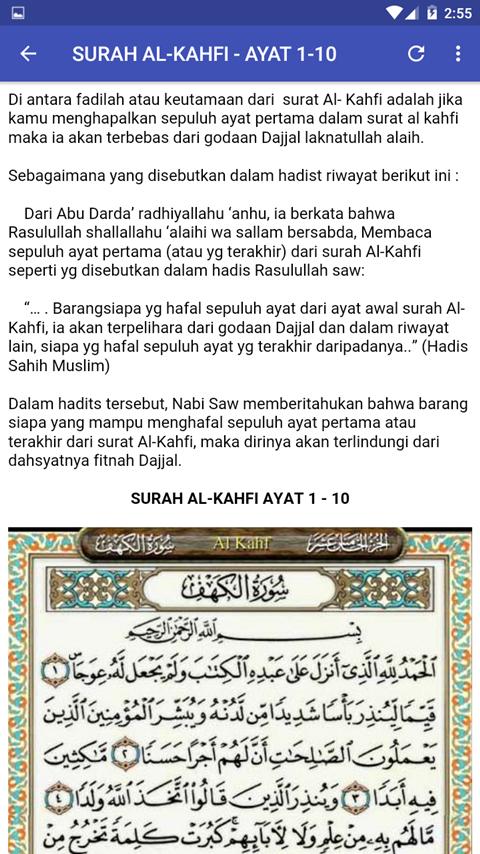 2:55
SURAH AL-KAHFI - AYAT 1-10
Di antara fadilah atau keutamaan dari  surat Al- Kahfi adalah jika
kamu menghapalkan sepuluh ayat pertama dalam surat al kahfi
maka ia akan terbebas dari godaan Dajjal laknatullah alaih.
Sebagaimana yang disebutkan dalam hadist riwayat berikut ini :
Dari Abu Darda’ radhiyallahu ‘anhu, ia berkata bahwa
Rasulullah shallallahu ‘alaihi wa sallam bersabda, Membaca
sepuluh ayat pertama (atau yg terakhir) dari surah Al-Kahfi
seperti yg disebutkan dalam hadis Rasulullah saw:
“… . Barangsiapa yg hafal sepuluh ayat dari ayat awal surah Al-
Kahfi, ia akan terpelihara dari godaan Dajjal dan dalam riwayat
lain, siapa yg hafal sepuluh ayat yg terakhir daripadanya..” (Hadis
Sahih Muslim)
Dalam hadits tersebut, Nabi Saw memberitahukan bahwa barang
siapa yang mampu menghafal sepuluh ayat pertama atau
terakhir dari surat Al-Kahfi, maka dirinya akan terlindungi dari
dahsyatnya fitnah Dajjal.
SURAH AL-KAHFI AYAT 1 - 10
الجزء الخامس عشر Al Kahf سورة الكهف
سُورَةُ الْكَهْفِ
بِسْمِ اللَّهِ الرَّحْمَٰنِ الرَّحِيمِ
ٱلْحَمْدُ لِلَّهِ ٱلَّذِىٓ أَنزَلَ عَلَىٰ عَبْدِهِ ٱلْكِتَٰبَ وَلَمْ يَجْعَل لَّهُۥ عِوَجَاۜ ١
قَيِّمًا لِّيُنذِرَ بَأْسًا شَدِيدًا مِّن لَّدُنْهُ وَيُبَشِّرَ ٱلْمُؤْمِنِينَ ٱلَّذِينَ
يَعْمَلُونَ ٱلصَّٰلِحَٰتِ أَنَّ لَهُمْ أَجْرًا حَسَنًا ٢ مَّٰكِثِينَ
فِيهِ أَبَدًا ٣ وَيُنذِرَ ٱلَّذِينَ قَالُوا۟ ٱتَّخَذَ ٱللَّهُ وَلَدًا ٤
مَّا لَهُم بِهِۦ مِنْ عِلْمٍ وَلَا لِءَابَآئِهِمْ ۚ كَبُرَتْ كَلِمَةً تَخْرُجُ مِنْ